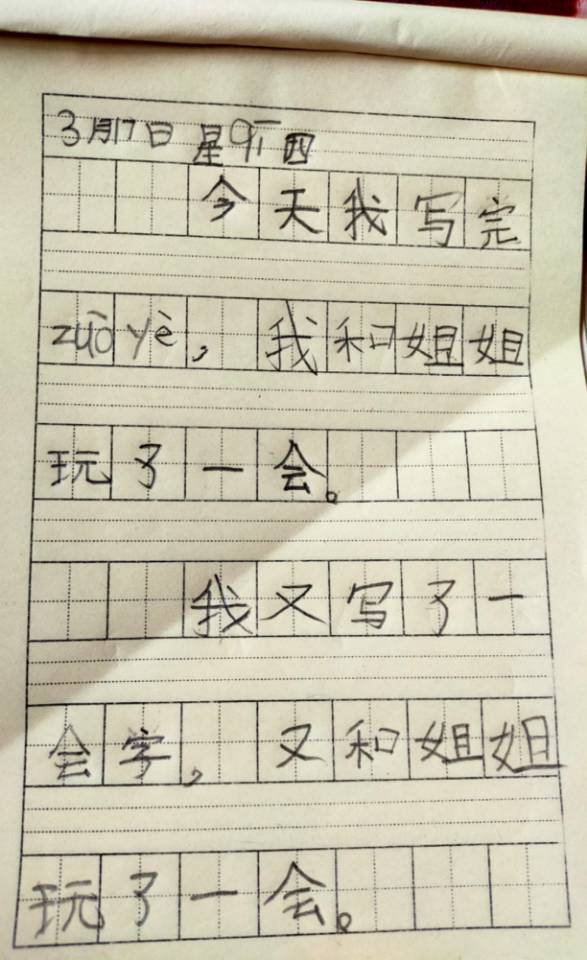 3月17日 星qī四
今天我写完
zuò yè，我和姐姐
玩了一会。
我又写了一
会字，又和姐姐
玩了一会。